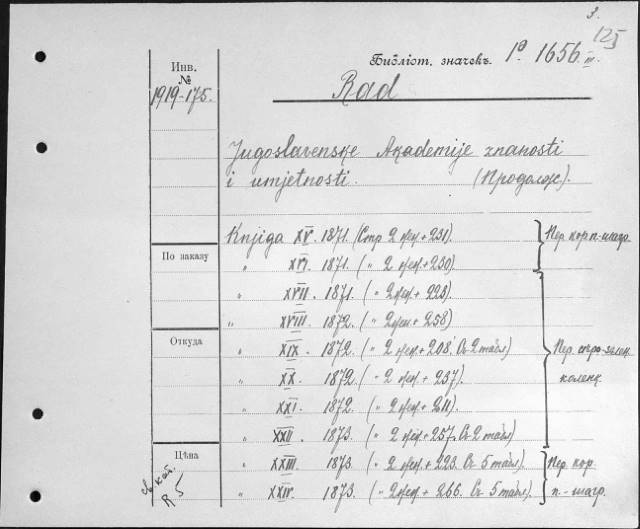 3.
125
Инв.
№
1919-175.
Библіот. значекъ. 10. 1656. III.
Rad
Jugoslavenske Akademije znanosti
i umjetnosti. (Продолж).
Knjiga XV. 1871. (Стр 2 нен + 231). Пер. кор п.-шагр.
„ XVI. 1871. („ 2 нен + 230).
По заказу
„ XVII. 1871. („ 2 нен + 223).
„ XVIII. 1872. („ 2 нен + 258)
Откуда
„ XIX. 1872. („ 2 нен + 208. Съ 2 табл) Пер.
„ XX. 1872. („ 2 нен. + 237). коленк.
„ XXI. 1872. („ 2 нен. + 211).
„ XXII. 1873. („ 2 нен + 257. Съ 2 табл)
Цѣна
„ XXIII. 1873. („ 2 нен. + 223. Съ 5 табл). Пер. кор.
„ XXIV. 1873. („ 2 нен + 266. Съ 5 табл). п.-шагр.
кат.
R 5